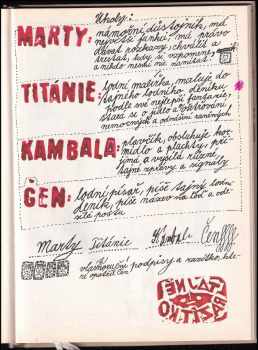 Úkoly:
MARTY: námořní důstojník, má
nejvyšší funkci, má právo
dávat rozkazy, chválit a
trestat, kdy si vzpomene,
a nikdo nesmí nic namítat!
TITÁNIE: lodní malířka, maluje do
tajného lodního deníku
podle své nejlepší fantasie,
stará se o jídlo a ošetřování
nemocných a odmění raněných
KAMBALA: plavčík, obsluhuje kor-
midlo a plachty, při-
jímá a vysílá různé
tajné zprávy a signály
ČEN: lodní písař, píše tajný lodní
deník, píše název na loď a ode-
sílá poštu
Marty Titánie Kambala Čen
vlastnoruční podpisy a razítko, kte-
ré opatřil Čen
TAJNÉ
RAZÍTKO